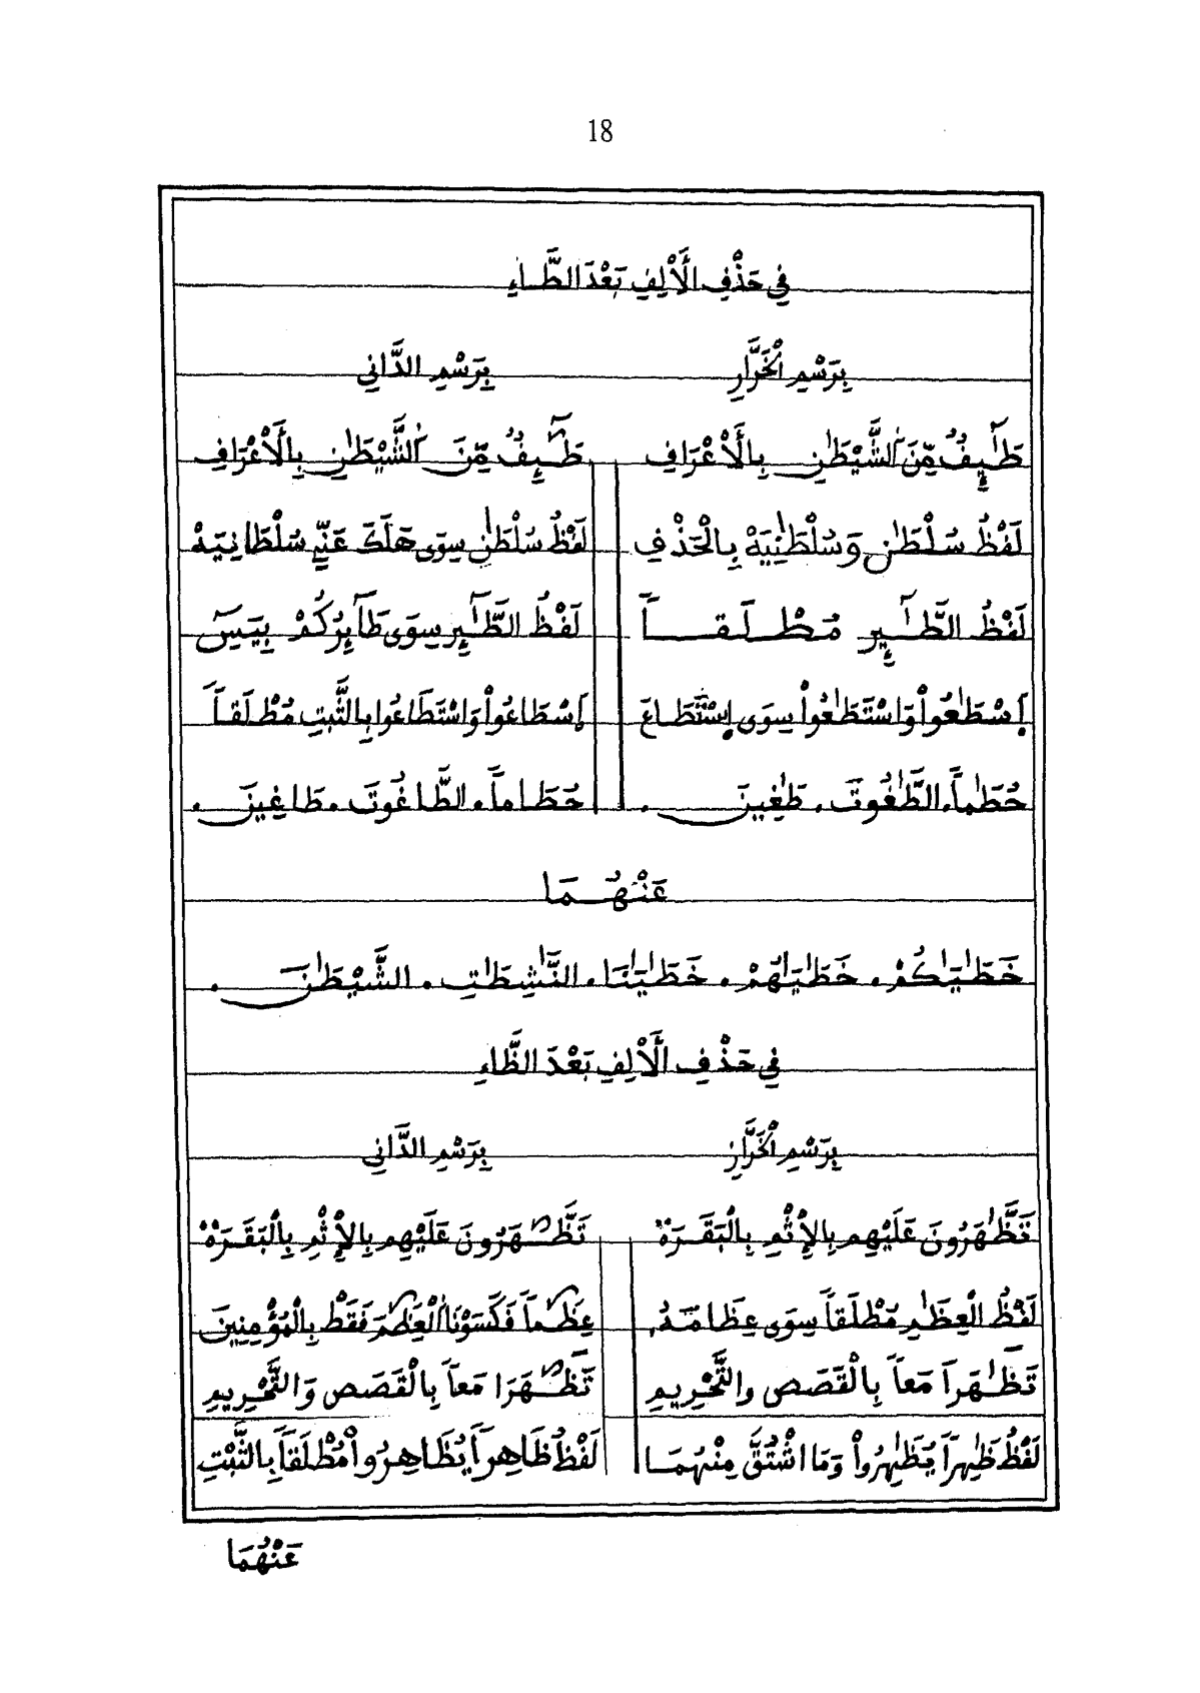 18
فِي حَذْفِ الْأَلِفِ بَعْدَ الطَّاءِ
بِرَسْمِ الْخَرَّازِ بِرَسْمِ الدَّانِي
طَٰٓئِفٌ مِّنَ الشَّيْطَٰنِ بِالْأَعْرَافِ طَٰٓئِفٌ مِّنَ الشَّيْطَٰنِ بِالْأَعْرَافِ
لَفْظُ سُلْطَٰنٍ وَسُلْطَٰنِيَهْ بِالْحَذْفِ لَفْظُ سُلْطَٰنٍ سِوَى هَلَكَ عَنِّي سُلْطَانِيَهْ
لَفْظُ الطَّٰٓئِرِ مُطْلَقاً لَفْظُ الطَّٰٓئِرِ سِوَى طَآئِرُكُمْ بِيَسَ
اِسْطَٰعُواْ وَاسْتَطَٰعُواْ سِوَى اِسْتَطَاعَ اِسْطَاعُواْ وَاسْتَطَاعُوا بِالثَّبْتِ مُطْلَقاً
حُطَٰماً. الطَّٰغُوتَ. طَٰغِينَ. حُطَاماً. الطَّاغُوتَ. طَاغِينَ.
عَنْهُمَا
خَطَٰيَٰكُمْ. خَطَٰيَٰهُمْ. خَطَٰيَٰنَا. النَّٰشِطَٰتِ. الشَّيْطَٰنَ.
فِي حَذْفِ الْأَلِفِ بَعْدَ الظَّاءِ
بِرَسْمِ الْخَرَّازِ بِرَسْمِ الدَّانِي
تَظَّٰهَرُونَ عَلَيْهِم بِالْإِثْمِ بِالْبَقَرَةْ تَظَّٰهَرُونَ عَلَيْهِم بِالْإِثْمِ بِالْبَقَرَةْ
لَفْظُ الْعِظَٰمِ مُطْلَقاً سِوَى عِظَامَهُ. عِظَٰماً فَكَسَوْنَا الْعِظَٰمَ فَقَطْ بِالْمُؤْمِنِينَ
تَظَّٰهَرَا مَعاً بِالْقَصَصِ وَالتَّحْرِيمِ تَظَّٰهَرَا مَعاً بِالْقَصَصِ وَالتَّحْرِيمِ
لَفْظُ ظَٰهِراً يُظَٰهِرُواْ وَمَا اشْتُقَّ مِنْهُمَا لَفْظُ ظَاهِراً يُظَاهِرُواْ مُطْلَقاً بِالثَّبْتِ
عَنْهُمَا